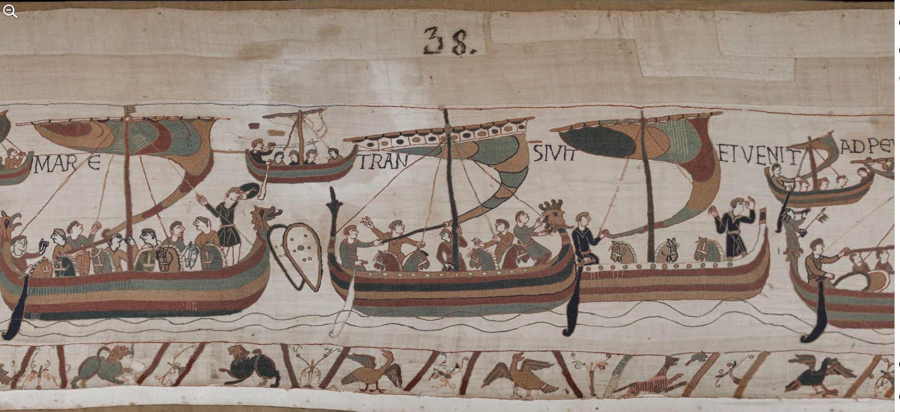 38.
MARE TRAN SIVIT ET VENIT AD PEV